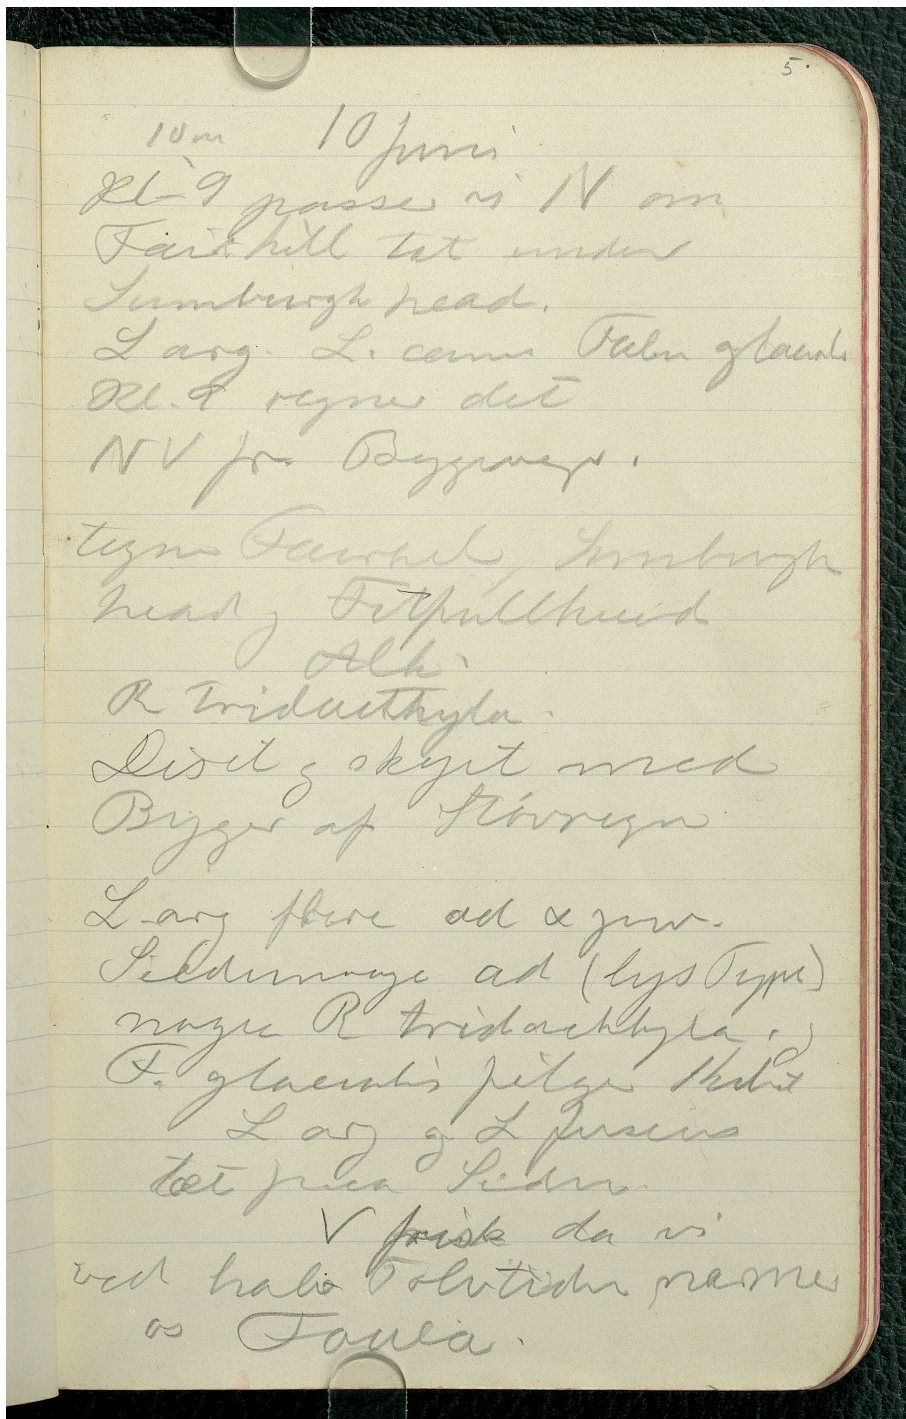 5.
10 m 10 Juni
Kl. 9 passer vi N om
Fairhill tæt under
Sumburgh head.
L arg. L. canus Fulm glacialis
Kl. 9 regner det
NV fr. Bygevejr.
tegner Fairhel, Sumburgh
head og Fitfullhead
Alk.
R tridactyla.
Diset og skyet med
Byger af Støvregn
L. arg flere ad & juv.
Sildemaage ad (lys Type)
nogle R tridactyla.
F. glacialis følger Skibet
L arg og L fuscus
tæt paa Siden
V frisk da vi
ved halv Tolvtiden nærme
os Foula.